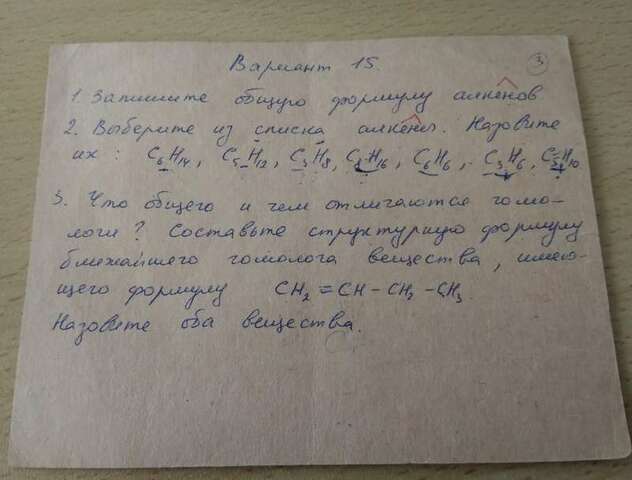 Вариант 15. 3
1. Запишите общую формулу алкенов
2. Выберите из списка алкены. Назовите
их: C6H14, C5H12, C3H8, C8H16, C6H6, C3H6, C5H10
3. Что общего и чем отличаются гомо-
логи? Составьте структурную формулу
ближайшего гомолога вещества, имею-
щего формулу CH2=CH-CH2-CH3.
Назовите оба вещества.